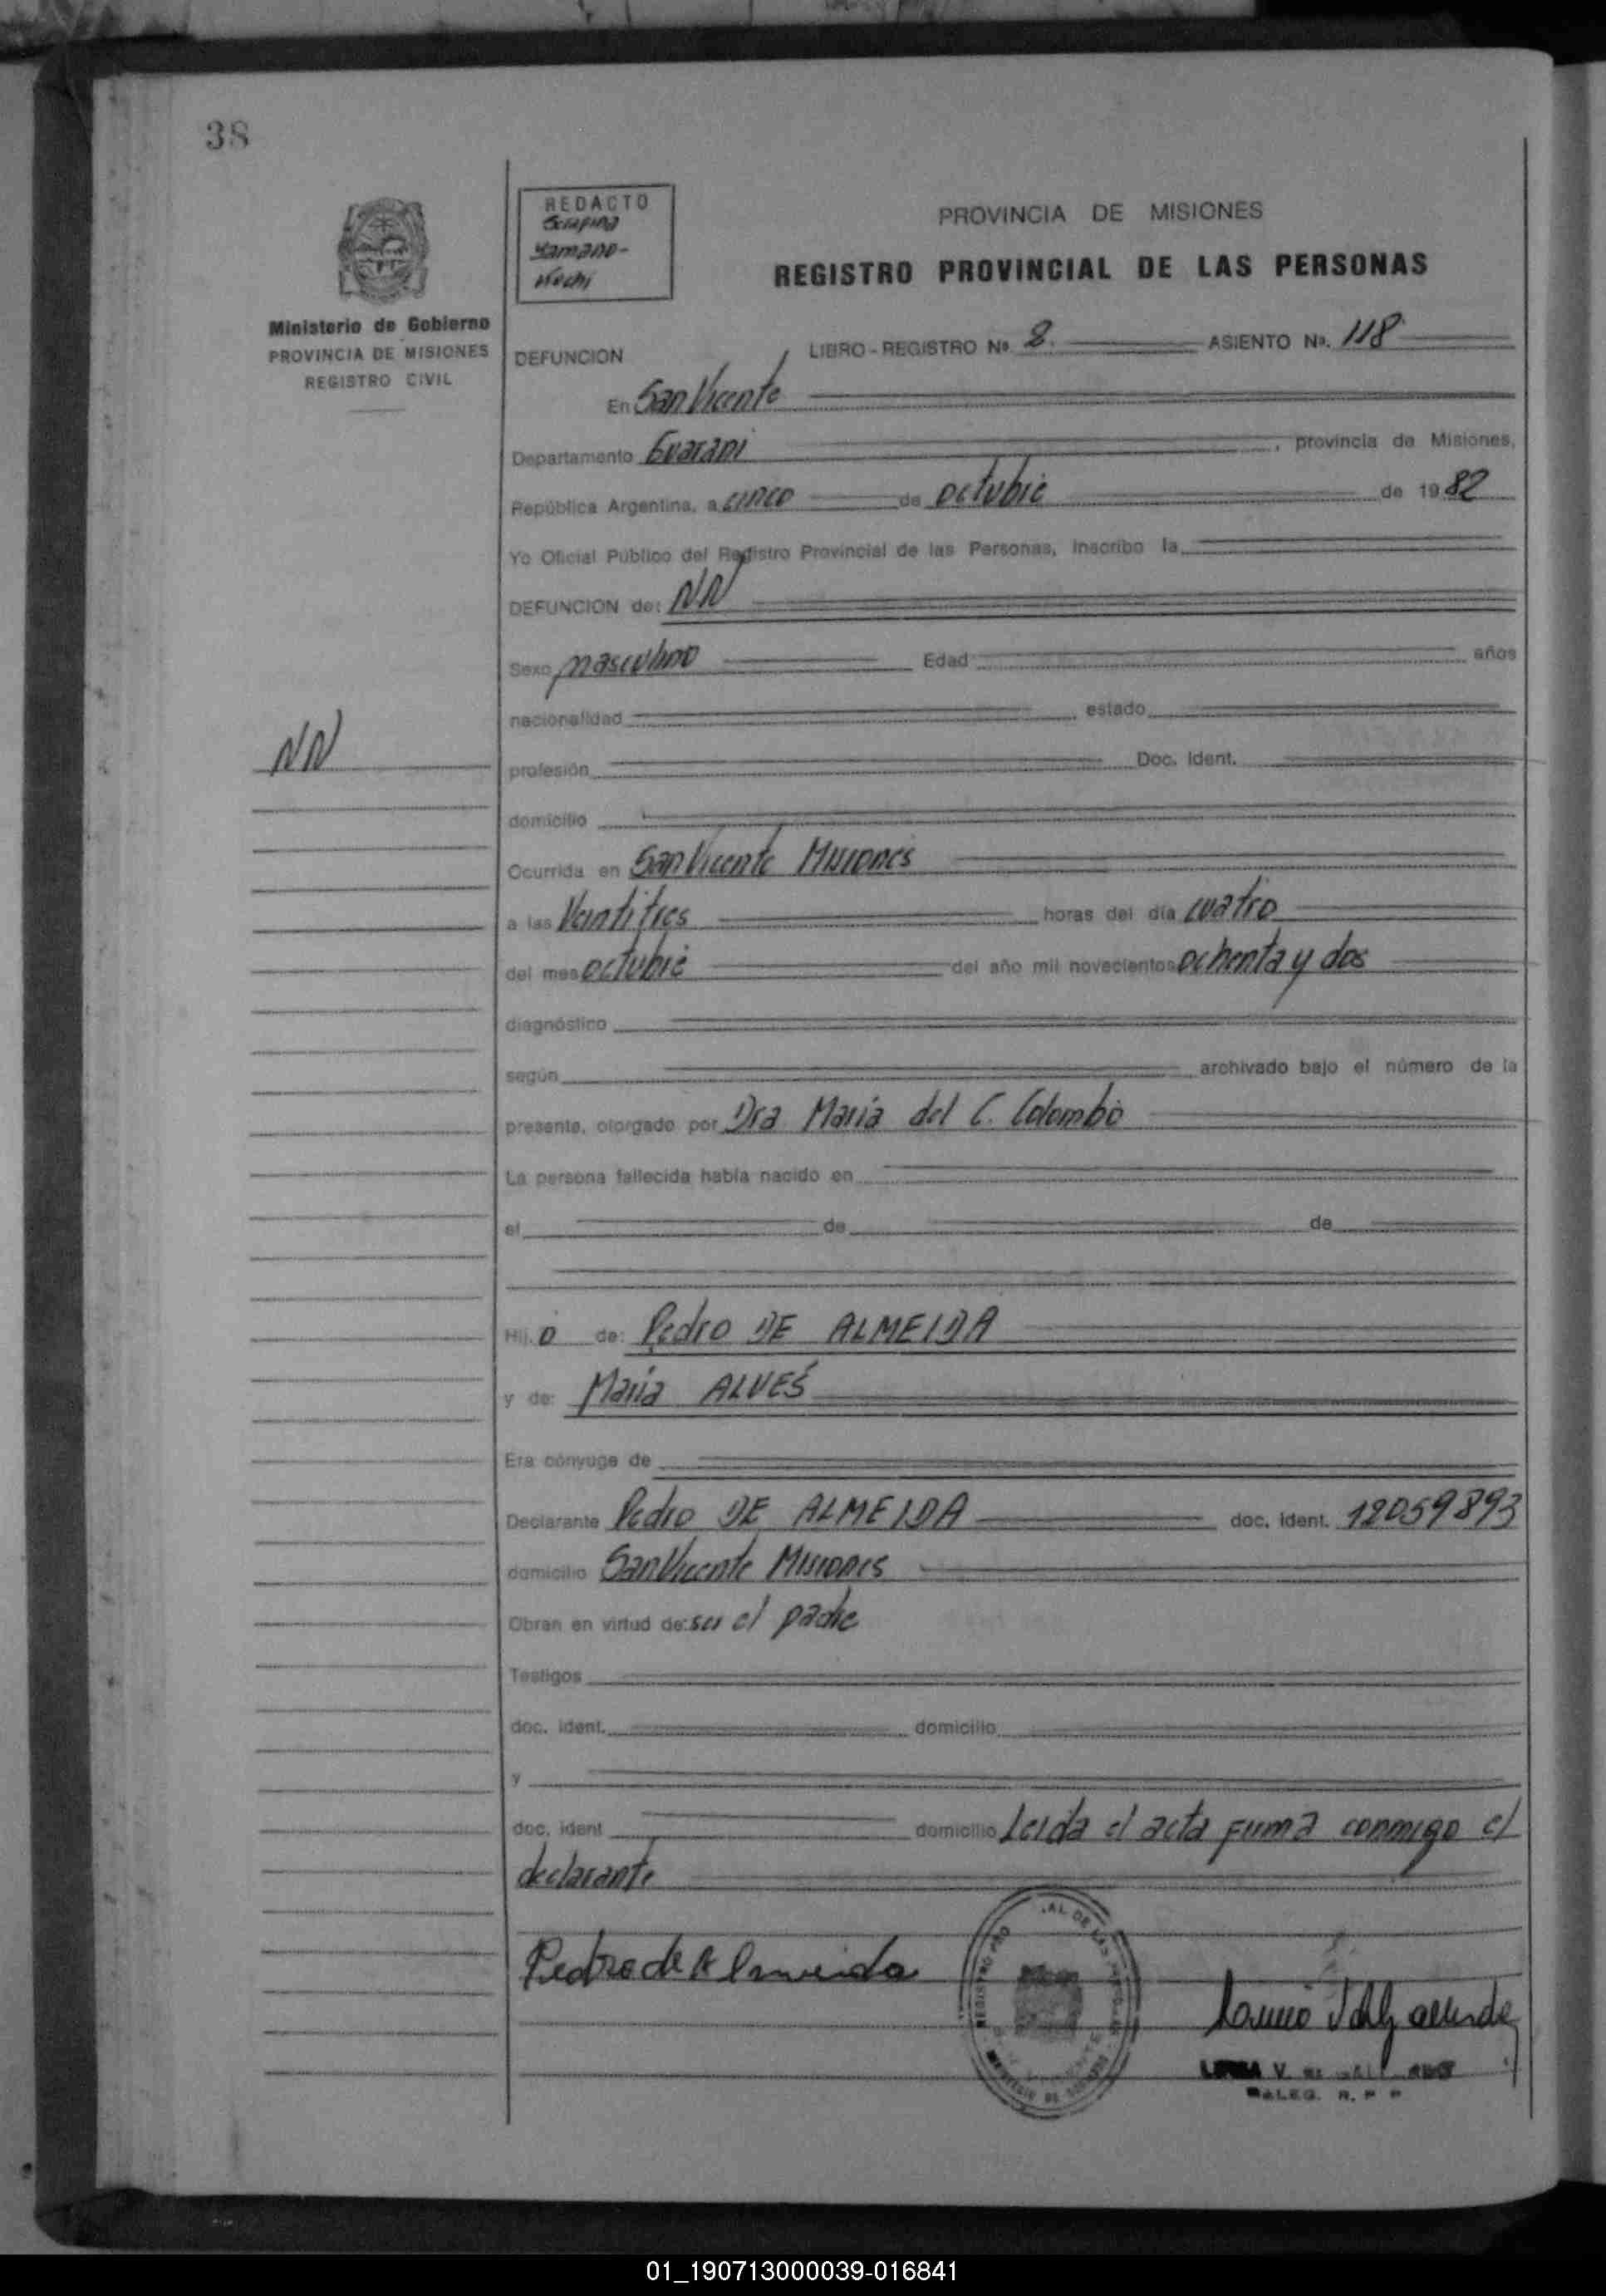 38
REDACTO
Serafina
Yamano-
PROVINCIA DE MISIONES
REGISTRO PROVINCIAL DE LAS PERSONAS
Ministerio de Gobierno
PROVINCIA DE MISIONES
REGISTRO CIVIL
DEFUNCION LIBRO - REGISTRO Nº 2. ASIENTO Nº. 118
En San Vicente
Departamento Guarani , provincia de Misiones,
República Argentina, a cinco de octubre de 1982
Yo Oficial Público del Registro Provincial de las Personas, inscribo la
DEFUNCION de: NN
Sexo masculino Edad años
nacionalidad estado
NN
profesión Doc. Ident.
domicilio
Ocurrida en San Vicente Misiones
a las Veintitres horas del día cuatro
del mes octubre del año mil novecientos ochenta y dos
diagnóstico
según archivado bajo el número de la
presente, otorgado por Dra Maria del C. Colombo
La persona fallecida había nacido en
el de de
Hij. o de: Pedro DE ALMEIDA
y de: Maria ALVES
Era cónyuge de
Declarante Pedro DE ALMEIDA doc. ident. 12059893
domicilio San Vicente Misiones
Obran en virtud de: ser el padre
Testigos
doc. ident. domicilio
y
doc. ident domicilio Leida el acta firma conmigo el
declarante
Pedro de Almeida
DELEG. R. P. P
01_190713000039-016841